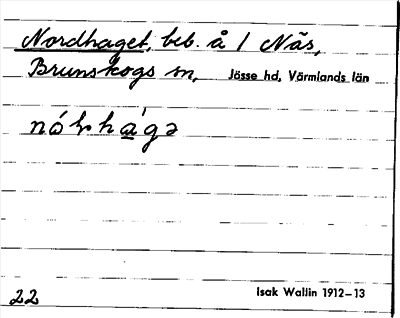 Nordhaget, beb. å 1 Näs,
Brunskogs sn, Jösse hd, Värmlands län
nó⁠ɽhágə
22 Isak Wallin 1912–13